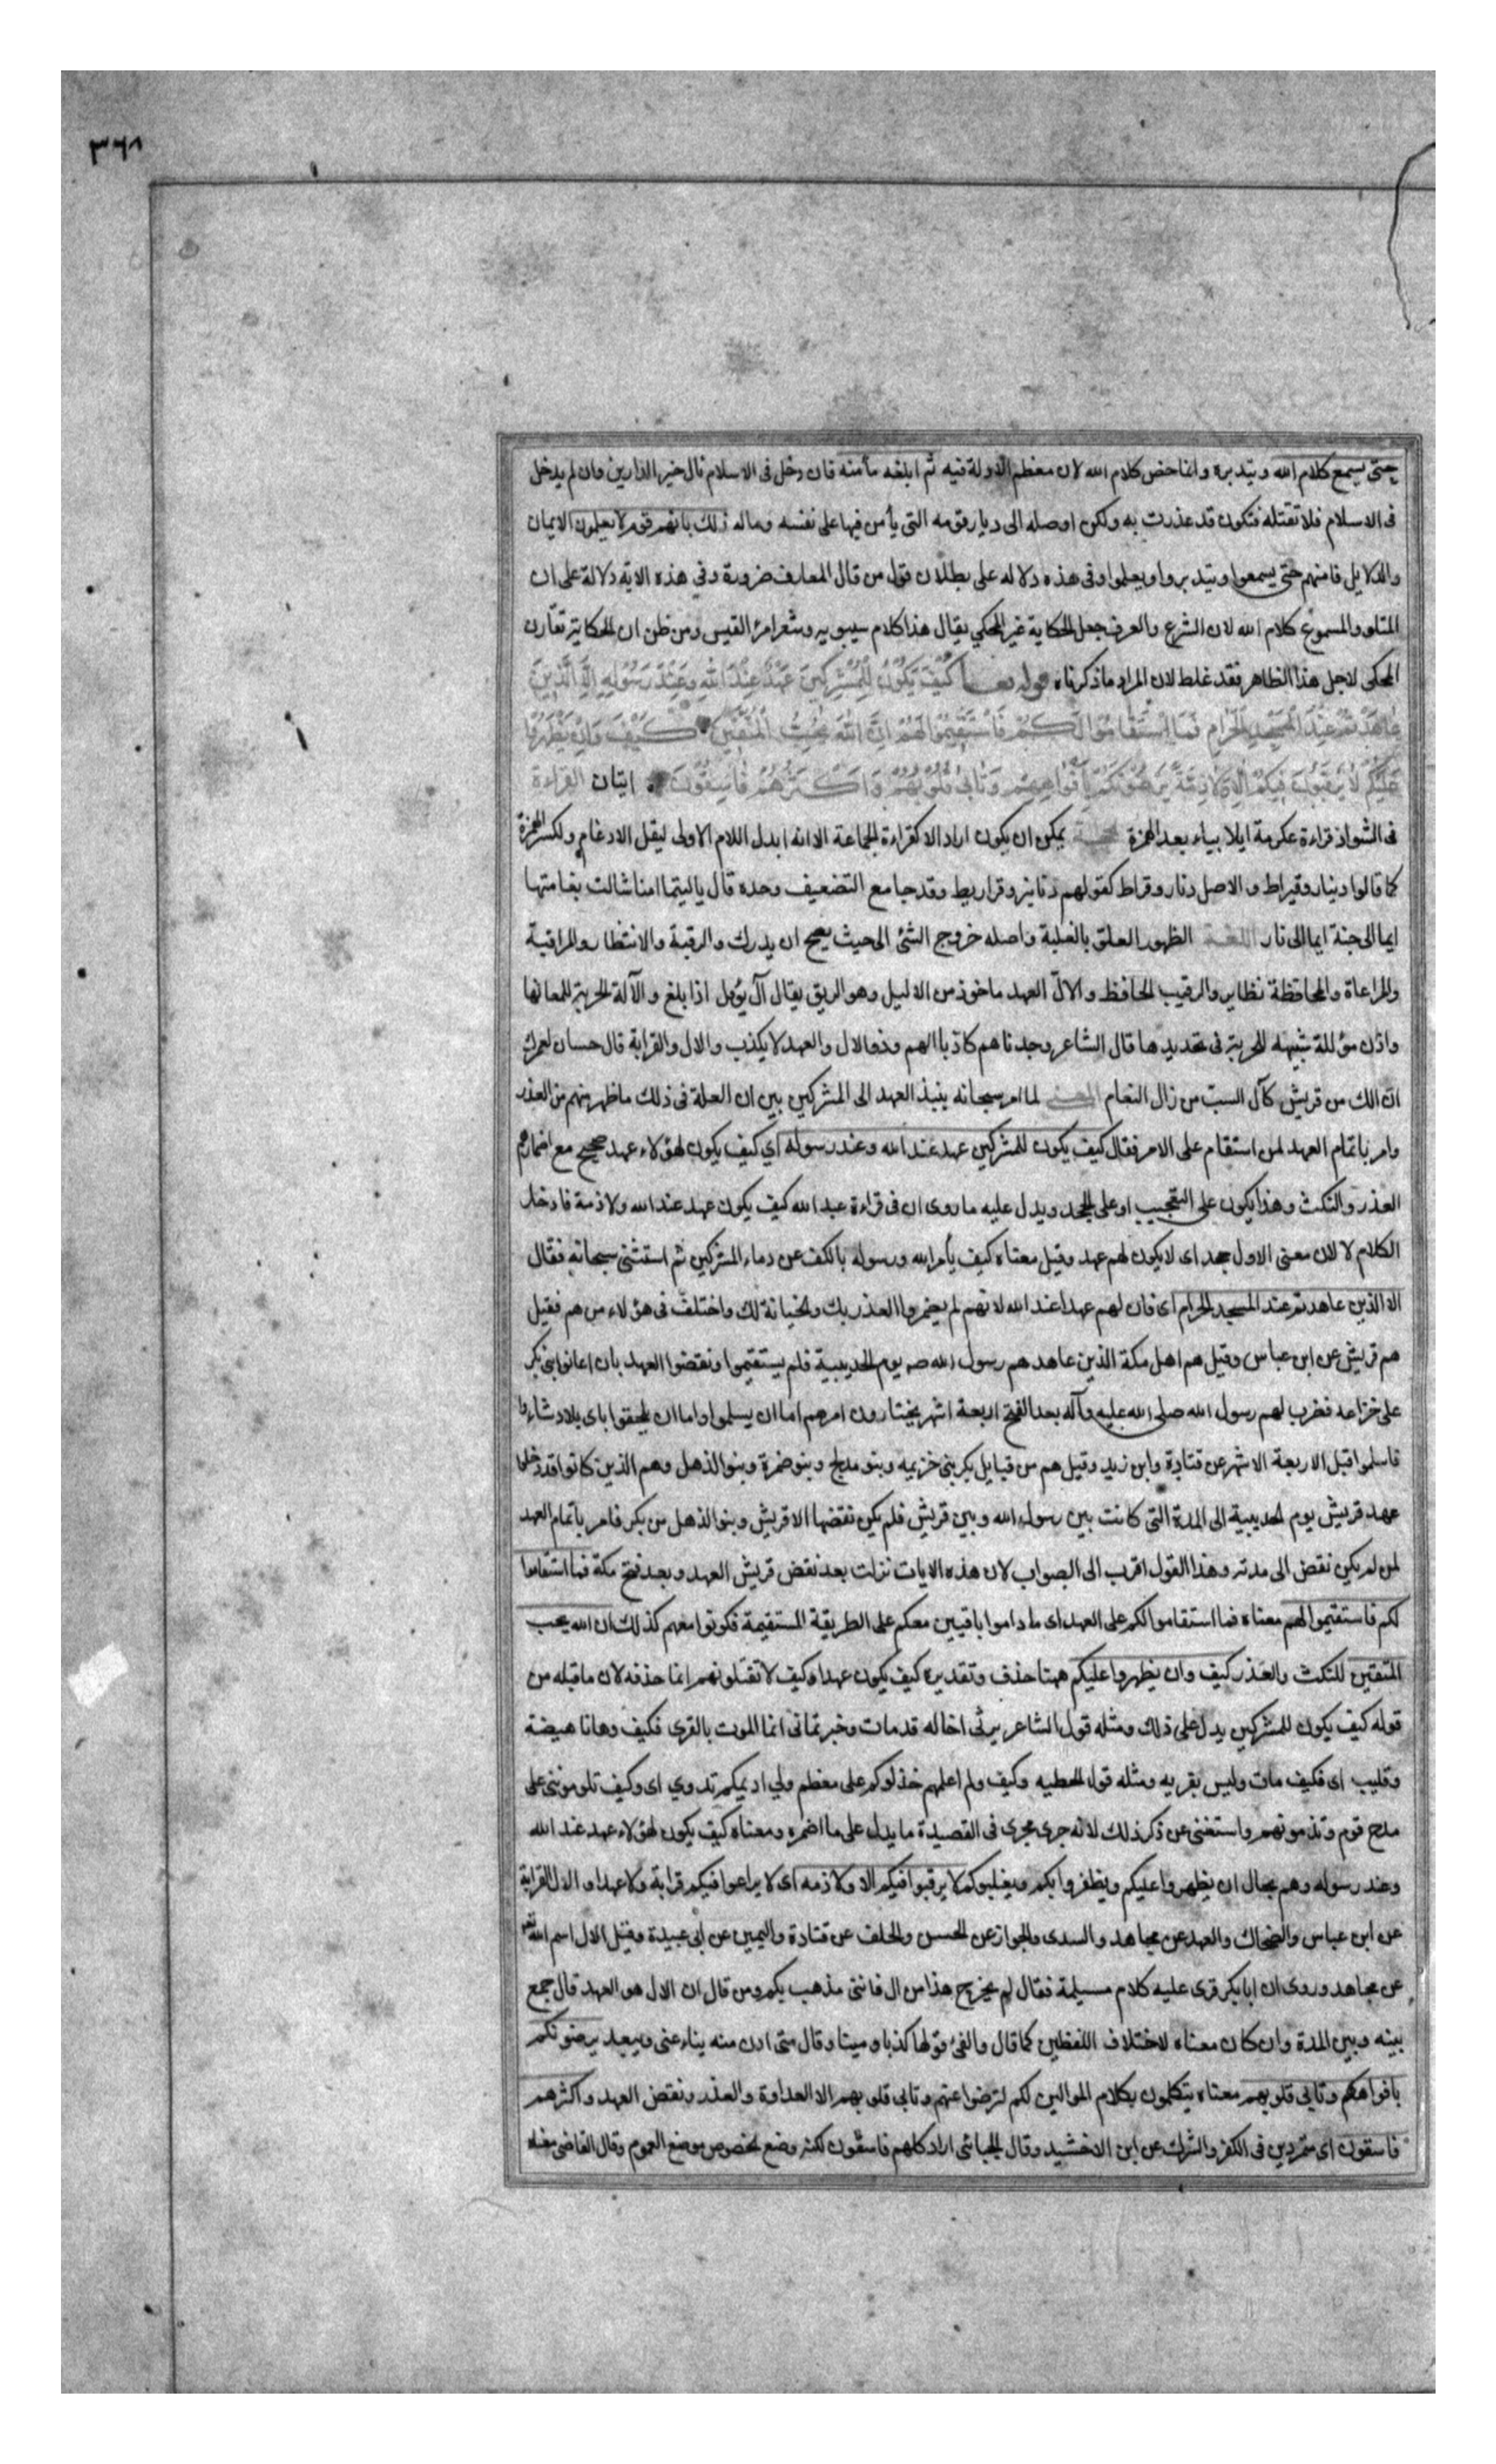 ٣٦٨
حتى يسمع كلام الله ويتدبره وانما خص كلام الله لان معظم الادلة فيه ثم ابلغه مأمنه فان دخل فى الاسلام نال خير الدارين وان لم يدخل
فى الاسلام فلا تقتله فتكون قد غدرت به ولكن اوصله الى ديار قومه التى يأمن فيها على نفسه وماله ذلك بانهم قوم لا يعلمون الايمان
والدلايل فامنهم حتى يسمعوا ويتدبروا ويعلموا وفى هذه دلاله على بطلان قول من قال المعارف ضرورة وفي هذه الاية دلالة على ان
المتلو والمسموع كلام الله لان الشرع والعرف جعل الحكاية غير المحكي يقال هذا كلام سيبويه وشعر امرئ القيس ومن ظن ان الحكاية تفارق
المحكى لاجل هذا الظاهر فقد غلط لان المراد ما ذكرناه قوله تعالى كَيْفَ يَكُونُ لِلْمُشْرِكِينَ عَهْدٌ عِنْدَ اللهِ وَعِنْدَ رَسُولِهِ اِلَّا الَّذِينَ
عَاهَدْتُمْ عِنْدَ الْمَسْجِدِ الْحَرَامِ فَمَا اسْتَقَامُوا لَكُمْ فَاسْتَقِيمُوا لَهُمْ اِنَّ اللهَ يُحِبُّ الْمُتَّقِينَ كَيْفَ وَاِنْ يَظْهَرُوا
عَلَيْكُمْ لَا يَرْقُبُوا فِيكُمْ اِلًّا وَلَا ذِمَّةً يُرْضُونَكُمْ بِاَفْوَاهِهِمْ وَتَأْبَى قُلُوبُهُمْ وَاَكْثَرُهُمْ فَاسِقُونَ ايتان القراءة
فى الشواذ قراءة عكرمة ايلا بياء بعد الهمزة الحجة يمكن ان يكون اراد الا كقراءة الجماعة الا انه ابدل اللام الاولى ليقل الادغام ولكسر الهمزة
كما قالوا دينار وقيراط والاصل دنار وقراط كقولهم دنانير وقراريط وقد جا مع التضعيف وحده قال ياليتما امنا شالت نعامتها
ايما الى جنة ايما الى نار اللغة الظهور العلو بالغلبة واصله خروج الشئ الى حيث يصح ان يدرك والرقبة والانتظار والمراقبة
والمراعاة والمحافظة نظاير والرقيب الحافظ والالّ العهد ماخوذ من الاليل وهو البريق يقال آل يؤل اذا بلغ والآلة الحربة للمعانها
واذن مؤللة شبيهه للحربة فى تحديدها قال الشاعر وجدناهم كاذبا الهم وذو الال والعهد لا يكذب والال والقرابة قال حسان لعمرك
ان الك من قريش كآل السبت من زال النعام المعنى لما امر سبحانه بنبذ العهد الى المشركين بين ان العلة فى ذلك ما ظهر منهم من الغدر
وامر باتمام العهد لمن استقام على الامر فقال كيف يكون للمشركين عهد عند الله وعند رسوله اي كيف يكون لهؤلاء عهد صحيح مع اضمارهم
الغدر والنكث وهذا يكون على التعجيب او على الجحد ويدل عليه ما روى ان فى قراءة عبد الله كيف يكون عهد عند الله ولا ذمة فادخل
الكلام لا لان معنى الاول جحد اى لا يكون لهم عهد وقيل معناه كيف يأمر الله ورسوله بالكف عن دماء المشركين ثم استثنى سبحانه فقال
الا الذين عاهدتم عند المسجد الحرام اى فان لهم عهدا عند الله لانهم لم يضمروا الغدر بك والخيانة لك واختلف فى هؤلاء من هم فقيل
هم قريش عن ابن عباس وقيل هم اهل مكة الذين عاهدهم رسول الله صم يوم الحديبية فلم يستقيموا ونقضوا العهد بان اعانوا بنى بكر
على خزاعه فضرب لهم رسول الله صلى الله عليه وآله بعد الفتح اربعة اشهر يختارون امرهم اما ان يسلموا واما ان يلحقوا باى بلاد شاءوا
فاسلموا قبل الاربعة الاشهر عن قتادة وابن زيد وقيل هم من قبايل بكر بنى خزيمه وبنو مدلج وبنو ضمرة وبنو الذهل وهم الذين كانوا قد دخلوا
عهد قريش يوم الحديبية الى المدة التى كانت بين رسول الله وبين قريش فلم يكن نقضها الا قريش وبنو الذهل من بكر فامر باتمام العهد
لمن لم يكن نقض الى مدته وهذا القول اقرب الى الصواب لان هذه الايات نزلت بعد نقض قريش العهد وبعد فتح مكة فما استقاموا
لكم فاستقيموا لهم معناه فما استقاموا لكم على العهد اى ما داموا باقيين معكم على الطريقة المستقيمة فكونوا معهم كذلك ان الله يحب
المتقين للنكث والغدر كيف وان يظهروا عليكم ههنا حذف وتقديره كيف يكون عهد او كيف لا تقتلونهم انما حذفه لان ما قبله من
قوله كيف يكون للمشركين يدل على ذلك ومثله قول الشاعر يرثى اخا له قد مات وخبرتمانى انما الموت بالقرى فكيف وهاتا هيضة
وقليب اى فكيف مات وليس بقريه ومثله قول الحطيه وكيف ولم اعلمهم خذلوكم على معظم ولي اديمكم تدوي اى وكيف تلومونني على
مدح قوم وتذمونهم واستغنى عن ذكر ذلك لانه جرى مجرى فى القصيدة ما يدل على ما اضمره ومعناه كيف يكون لهؤلاء عهد عند الله
وعند رسوله وهم بحال ان يظهروا عليكم ويظفروا بكم ويغلبوكم لا يرقبوا فيكم الا ولا ذمه اى لا يراعوا فيكم قرابة ولا عهدا والال القرابة
عن ابن عباس والضحاك والعهد عن مجاهد والسدى والجوار عن الحسن والحلف عن قتادة واليمين عن ابى عبيدة وقيل الال اسم الله تعم
عن مجاهد وروى ان ابا بكر قرى عليه كلام مسيلمة فقال لم يخرج هذا من ال فانى مذهب بكم ومن قال ان الال هو العهد قال جمع
بينه وبين المدة وان كان معناه لاختلاف اللفظين كما قال والفى قولها كذبا ومينا وقال متى ادن منه يناء عنى ويبعد يرضونكم
بافواهكم وتابى قلوبهم معناه يتكلمون بكلام الموالين لكم لترضوا عنهم وتابى قلوبهم الا العداوة والغدر ونقض العهد واكثرهم
فاسقون اى متمردين فى الكفر والشرك عن ابن الاخشيد وقال الجبائى اراد كلهم فاسقون لكنه وضع الخصوص موضع العموم وقال القاضى معناه